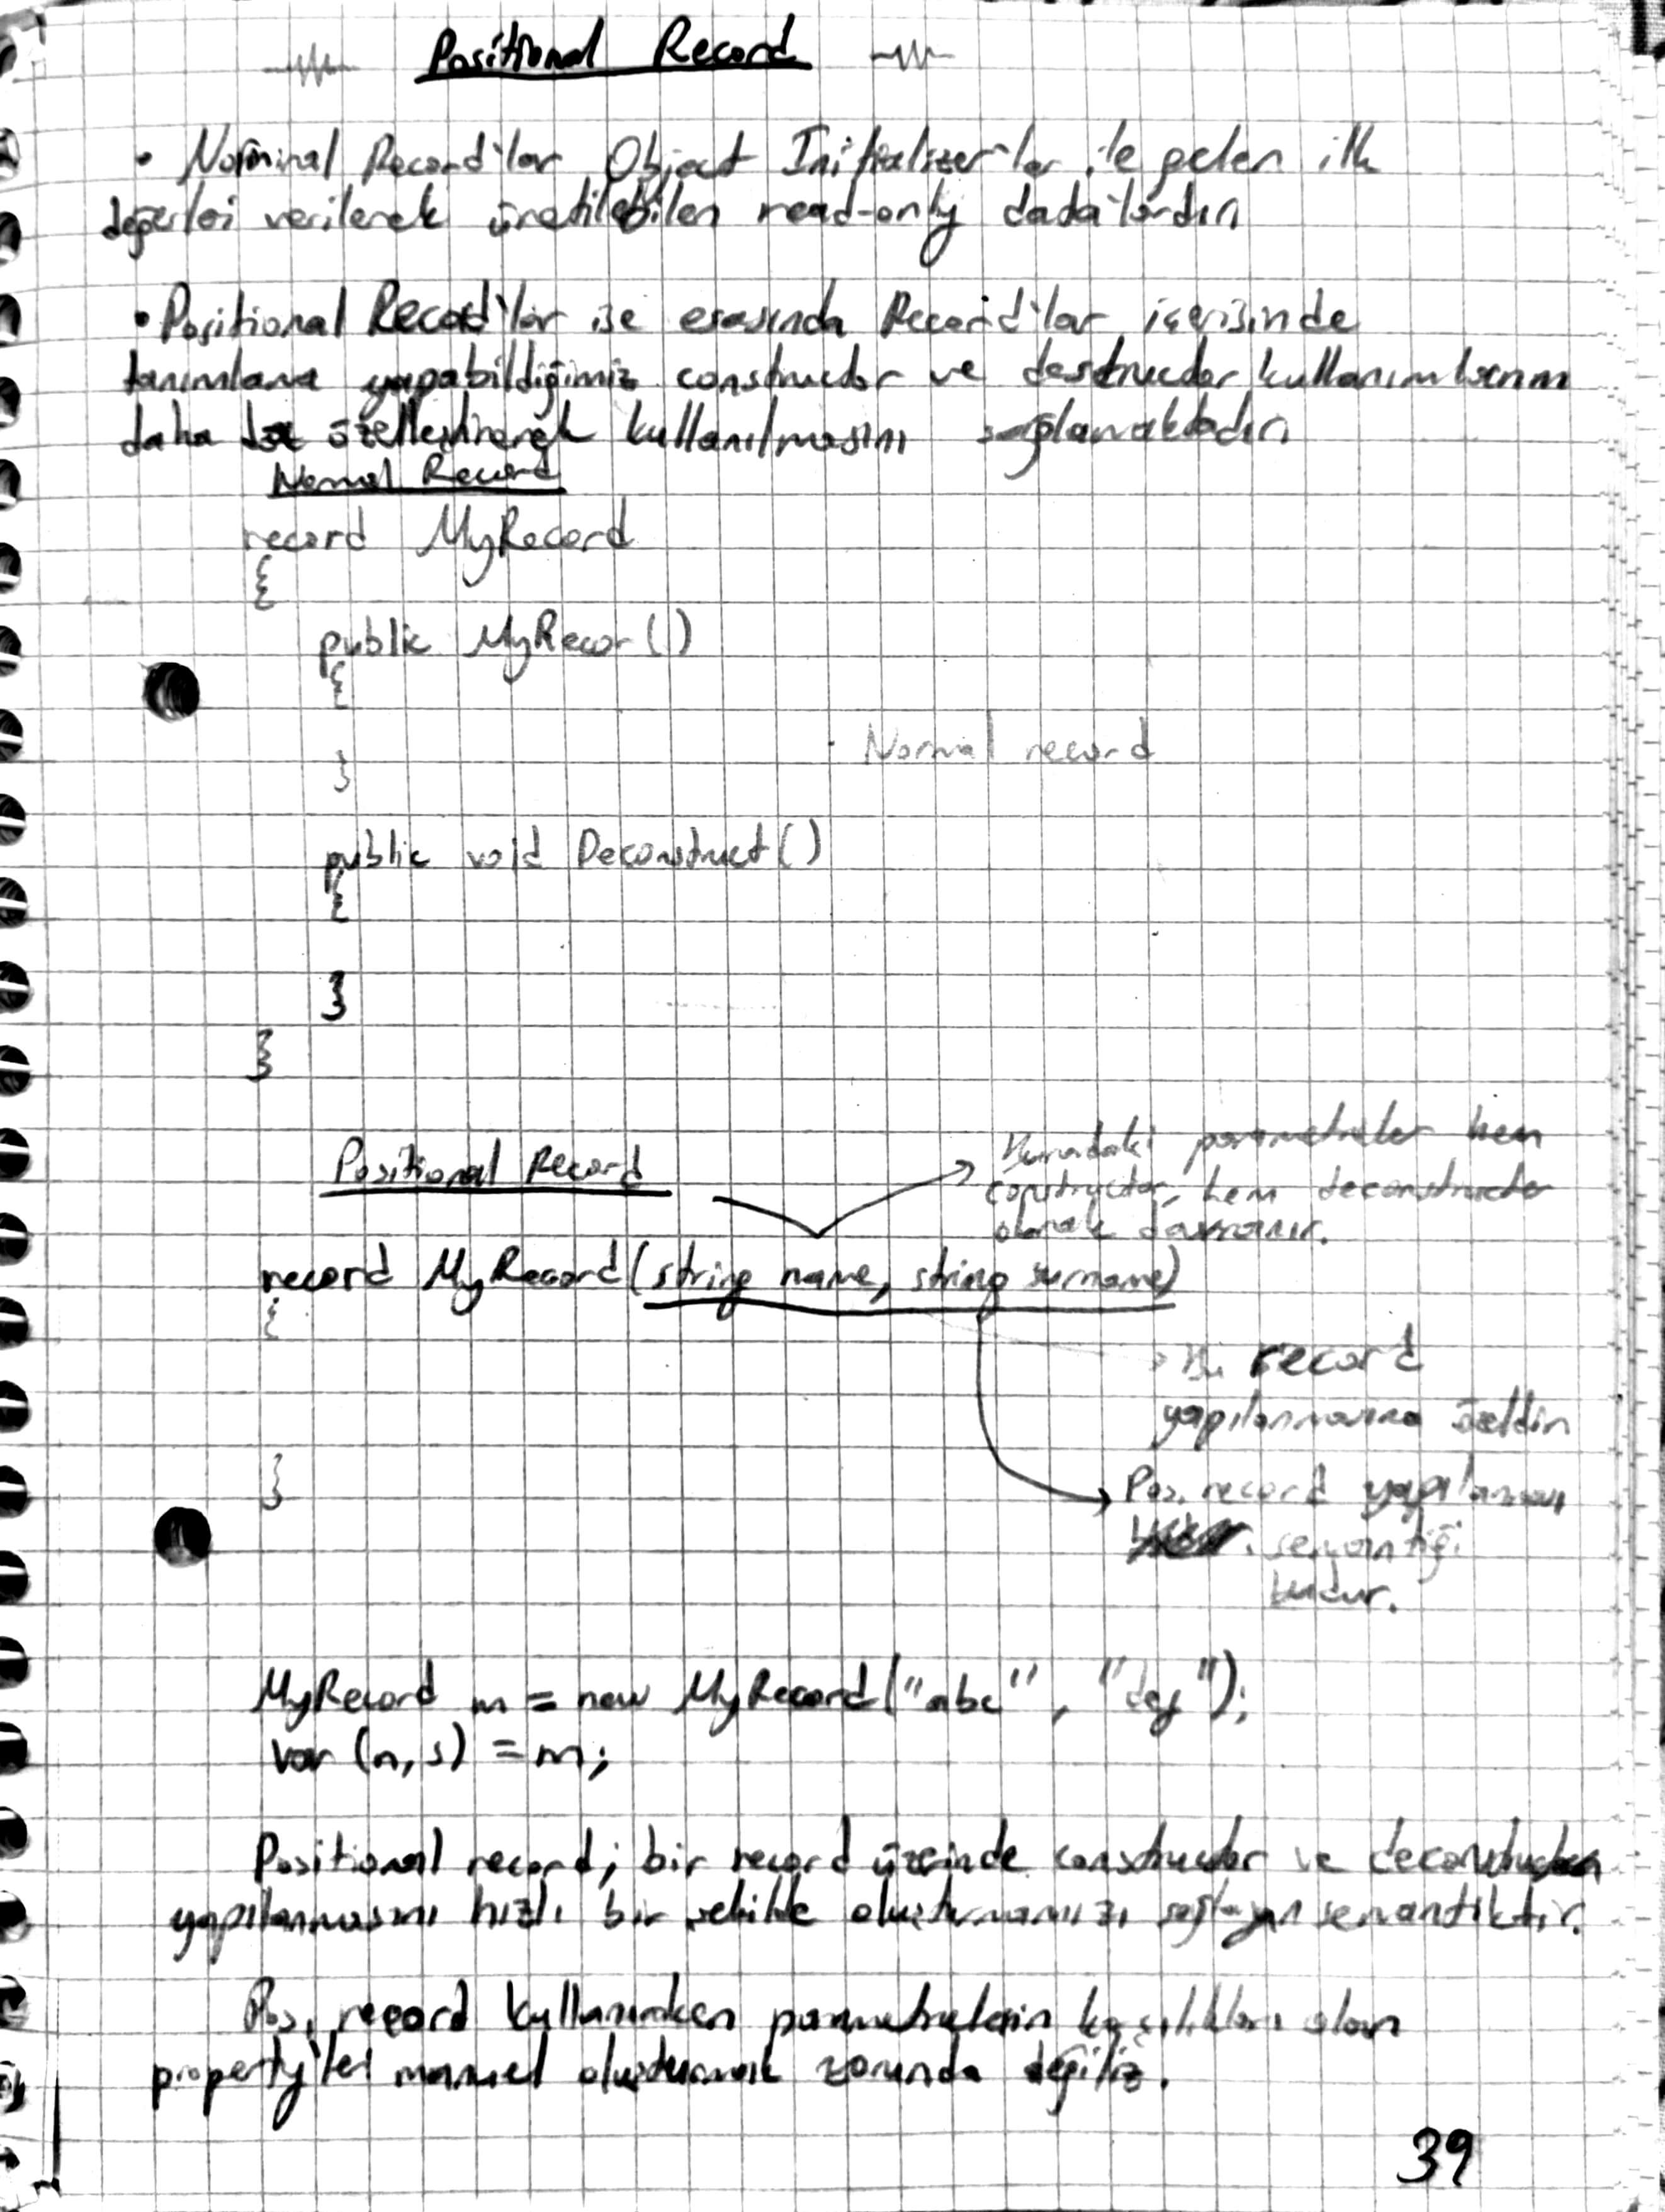 Positional Record
• Nominal Record'lar Object Initializer'lar ile gelen ilk
değerleri verilerek üretilebilen read-only datalardır
• Positional Record'lar ise esasında Record'lar içerisinde
tanımlama yapabildiğimiz constructor ve desctructor kullanımlarının
daha özelleştirerek kullanılmasını sağlamaktadır
Normal Record
record MyRecord
{
public MyRecor()
{
}
Normal record
public void Deconstruct()
{
}
}
Positional Record
Buradaki parametreler hem
constructor, hem deconstructor
olarak davranır.
record MyRecord(string name, string surname)
{
Bu record
yapılanmasına özeldir
}
Pos. record yapılanması
semantiği
budur.
MyRecord m = new MyRecord("abc", "def");
var (n, s) = m;
Positional record; bir record üzerinde constructor ve deconstructor
yapılanmasını hızlı bir şekilde oluşturmamızı sağlayan semantiktir.
Pos. record kullanırken parametrelerin karşılıkları olan
property'leri manuel oluşturmak zorunda değiliz.
39